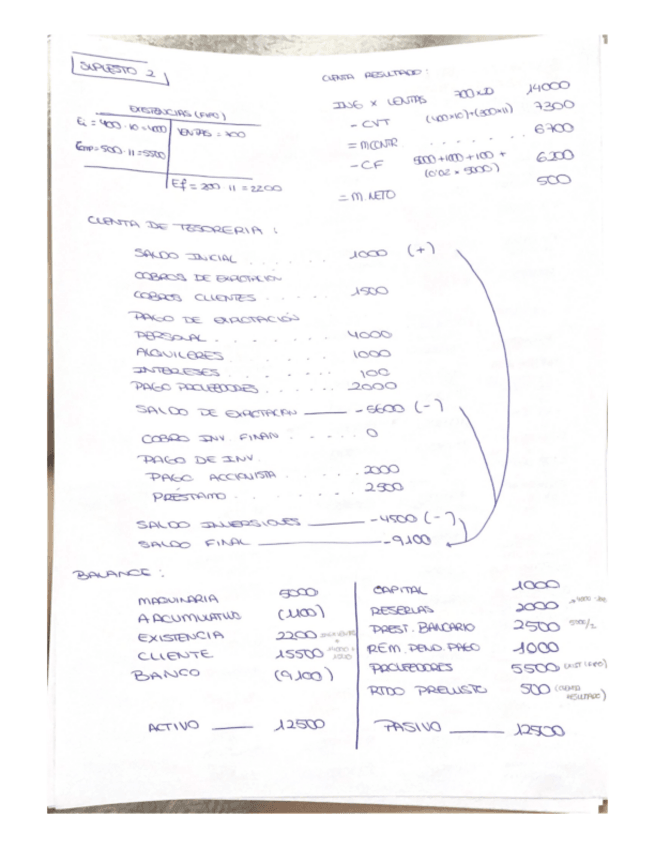 SUPUESTO 2
EXISTENCIAS (FIFO)
Ei = 400 · 10 = 4000 VENTAS = 700
Comp = 500 · 11 = 5500
Ef = 200 · 11 = 2200
CUENTA RESULTADO:
ING X VENTAS 700 x 20 14000
- CVT (400x10)+(300x11) 7300
= M.CONTR. 6700
- CF 5000 + 1000 + 100 + 6200
(0'02 x 5000)
= M. NETO 500
CUENTA DE TESORERIA:
SALDO INICIAL 1000 (+)
COBROS DE EXPLOTACIÓN
COBROS CLIENTES 1500
PAGO DE EXPLOTACIÓN
PERSONAL 4000
ALQUILERES 1000
INTERESES 100
PAGO PROVEEDORES 2000
SALDO DE EXPLOTACION -5600 (-)
COBRO INV. FINAN 0
PAGO DE INV.
PAGO ACCIONISTA 2000
PRÉSTAMO 2500
SALDO INVERSIONES -4500 (-)
SALDO FINAL -9100
BALANCE:
MAQUINARIA 5000
A ACUMULATIVO (1100)
EXISTENCIA 2200
CLIENTE 15500
BANCO (9100)
ACTIVO 12500
CAPITAL 1000
RESERVAS 2000
PREST. BANCARIO 2500 5000/2
REM. PEND. PAGO 1000
PROVEEDORES 5500
RTDO PREVISTO 500 (CUENTA RESULTADO)
PASIVO 12500